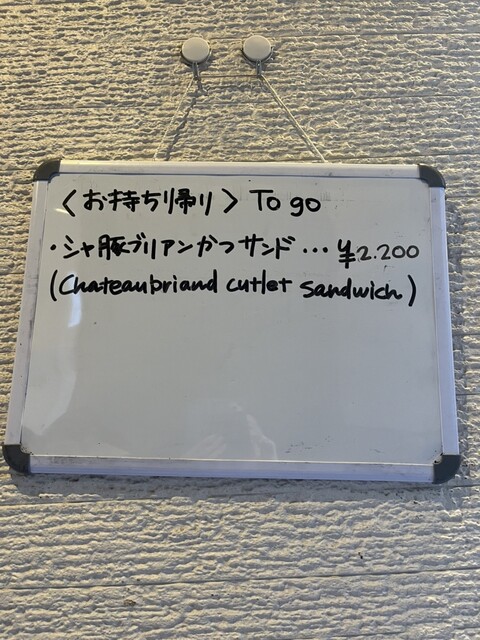 〈お持ち帰り〉 To go
・シャ豚ブリアンかつサンド…¥2.200
(Chateaubriand cutlet sandwich)